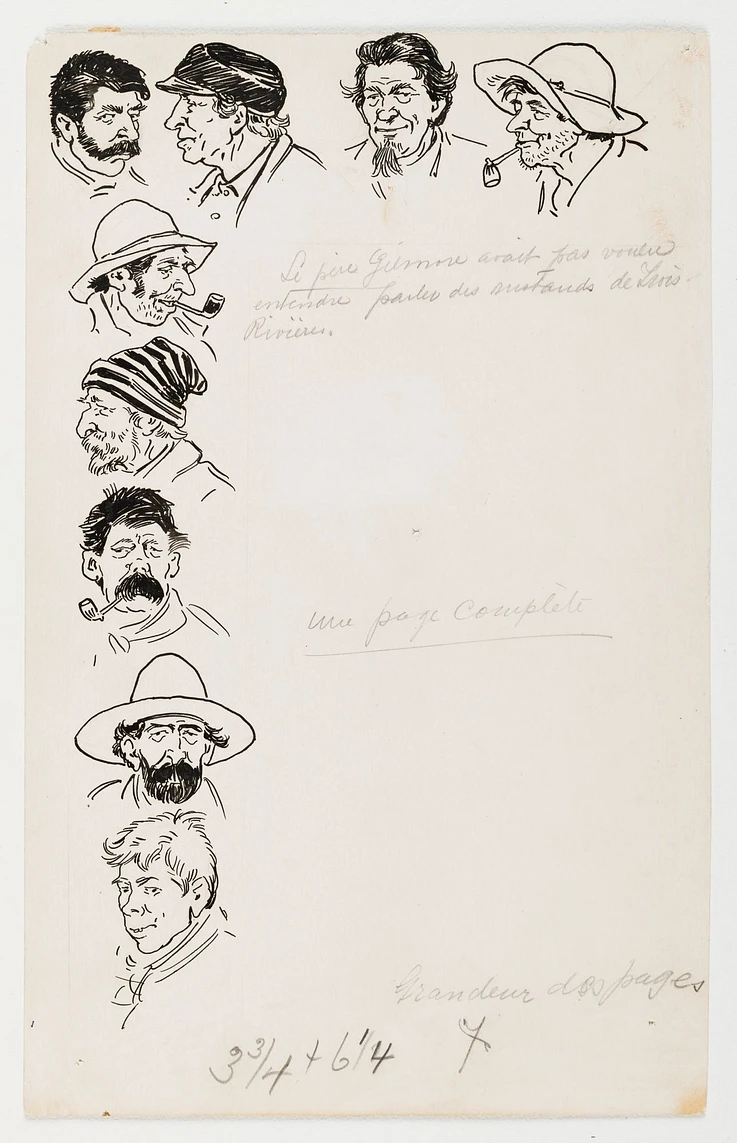 Le père Gilmore avait pas voulu
entendre parler des mustauds de Trois-
Rivières.
une page complète
Grandeur des pages
3 3/4 + 6 1/4 7